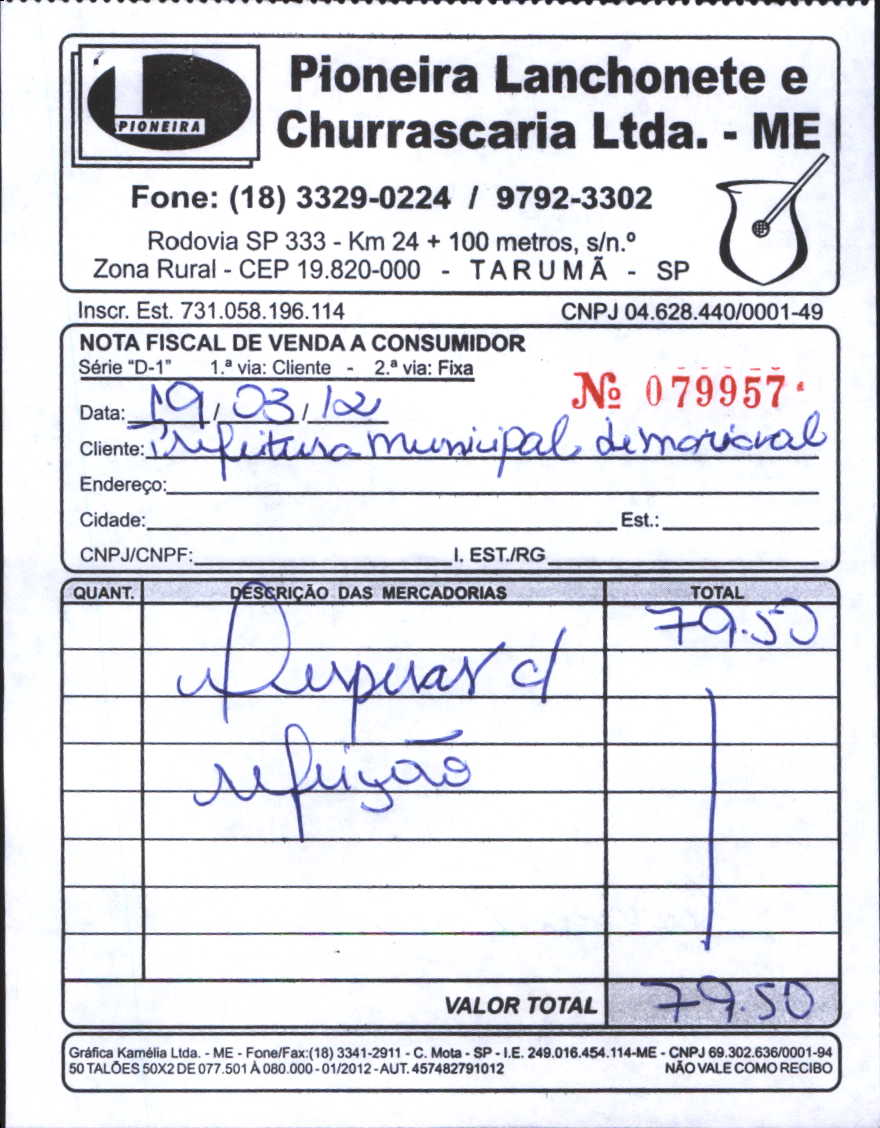 PIONEIRA
Pioneira Lanchonete e
Churrascaria Ltda. - ME
Fone: (18) 3329-0224 / 9792-3302
Rodovia SP 333 - Km 24 + 100 metros, s/n.º
Zona Rural - CEP 19.820-000 - TARUMÃ - SP
Inscr. Est. 731.058.196.114 CNPJ 04.628.440/0001-49
NOTA FISCAL DE VENDA A CONSUMIDOR
Série "D-1" 1.ª via: Cliente - 2.ª via: Fixa
Nº 079957
Data: 19/03/12
Cliente: Prefeitura municipal de
Endereço:
Cidade: Est.:
CNPJ/CNPF: I. EST./RG
QUANT. DESCRIÇÃO DAS MERCADORIAS TOTAL
79.50
Despesas c/
refeição
VALOR TOTAL 79.50
Gráfica Kamélia Ltda. - ME - Fone/Fax:(18) 3341-2911 - C. Mota - SP - I.E. 249.016.454.114-ME - CNPJ 69.302.636/0001-94
50 TALÕES 50X2 DE 077.501 À 080.000 - 01/2012 - AUT. 457482791012 NÃO VALE COMO RECIBO